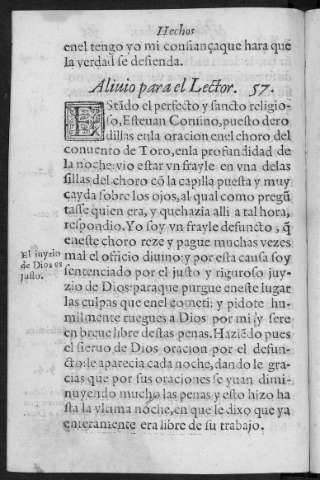 Hechos
enel tengo yo mi confiança que hara que
la verdad se defienda.
Aliuio para el Lector. 57.
EStãdo el perfecto y sancto religio-
so, Esteuan Coruino, puesto dero
dillas enla oracion enel choro del
conuento de Toro, enla profundidad de
la noche, vio estar vn frayle en vna delas
sillas del choro cõ la capilla puesta y muy
cayda sobre los ojos, al qual como pregũ
tasse quien era, y quehazia alli a tal hora,
respondio. Yo soy vn frayle defuncto, q̃
eneste choro reze y pague muchas vezes
mal el officio diuino y por esta causa soy
sentenciado por el justo y riguroso juy-
zio de Dios paraque purgue eneste lugar
las culpas que enel cometi: y pidote hu-
milmente ruegues a Dios por mi y sere
en breue libre destas penas. Haziẽdo pues
el sieruo de Dios oracion por el defun-
cto: le aparecia cada noche, dando le gra-
cias que por sus oraciones se yuan dimi-
nuyendo mucho las penas y esto hizo ha
sta la vltima noche, en que le dixo que ya
enteramente era libre de su trabajo.
El juyzio
de Dios es
justo.